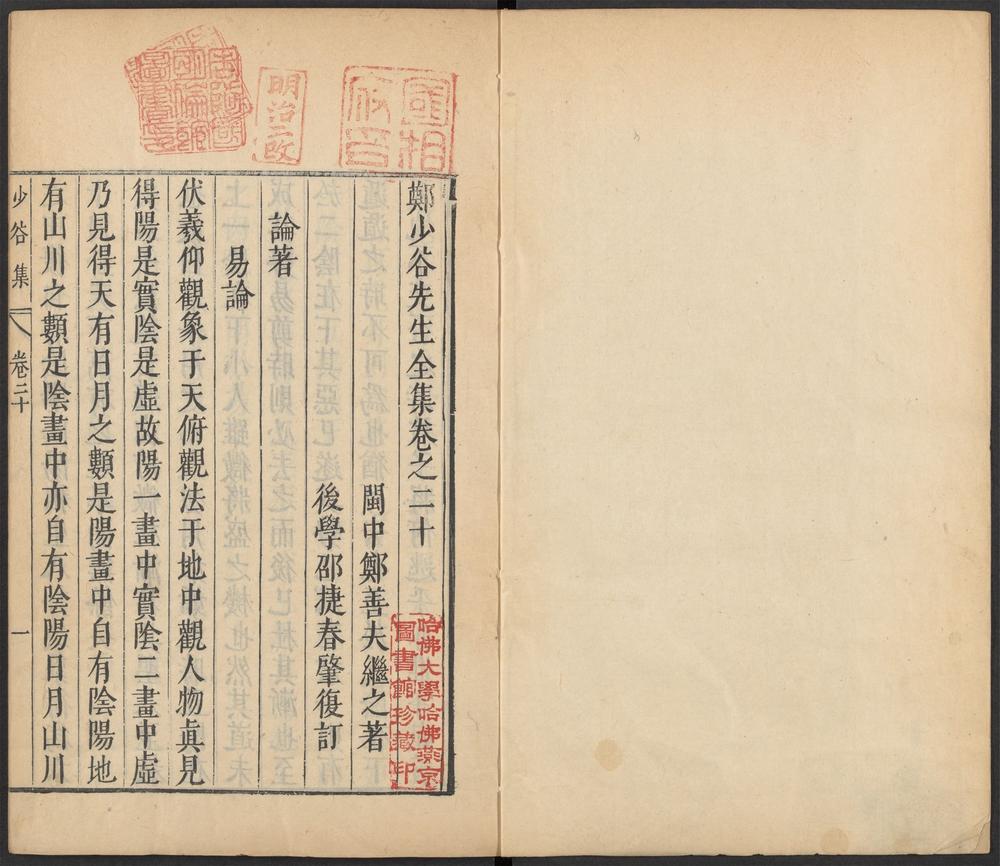 鄭少谷先生全集卷之二十
閩中鄭善夫繼之著
後學邵捷春肇復訂
論著
易論
伏羲仰觀象于天俯觀法于地中觀人物眞見
得陽是實陰是虛故陽一畫中實陰二畫中虛
乃見得天有日月之顯是陽畫中自有陰陽地
有山川之顯是陰畫中亦自有陰陽日月山川
少谷集
卷二十
一
明治二改
國相府印
哈佛大學哈佛燕京
圖書館珍藏印